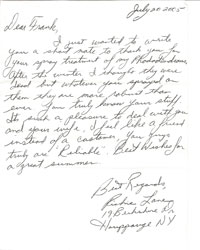 July 20 2015
Dear Frank,
I just wanted to write
you a short note to thank you for
your spray treatment of my Rhododendrons
After this winter I thought they were
dead but whatever you sprayed on
them they are more robust than
ever. You truly know your stuff.
It's such a pleasure to deal with you
and your wife. I feel like a friend
instead of a customer. You guys
truly are "Reliable". Best Wishes for
a great summer.
Best Regards,
Hauppauge NY